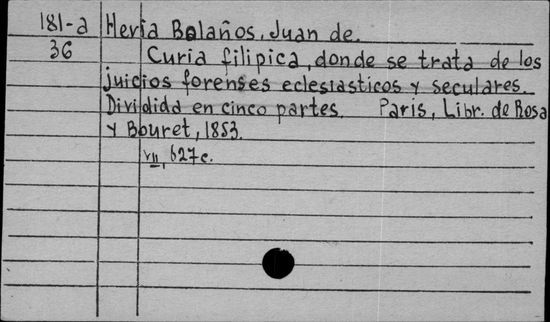 181-a Hevia Bolaños, Juan de.
36 Curia filipica, donde se trata de los
juicios forenses eclesiasticos y seculares.
Dividida en cinco partes. Paris, Libr. de Rosa
y Bouret, 1853.
VII, 627c.